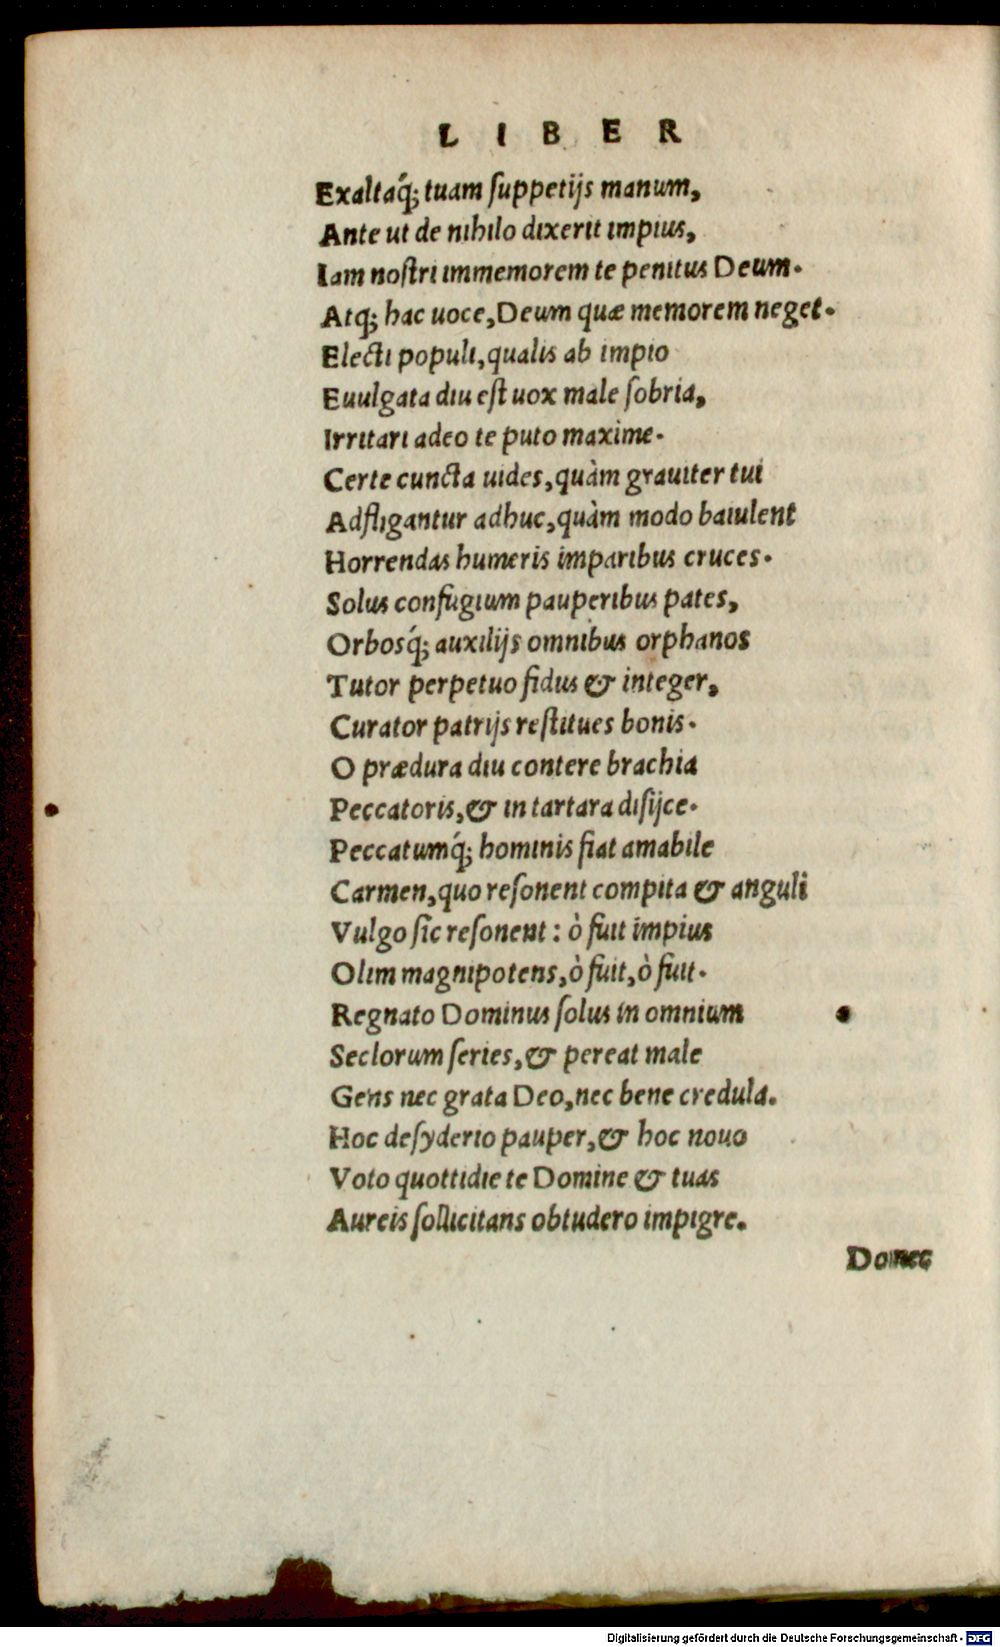 LIBER
Exaltaq́; tuam ſuppetijs manum,
Ante ut de nihilo dixerit impius,
Iam noſtri immemorem te penitus Deum.
Atq; hac uoce, Deum quæ memorem neget.
Electi populi, qualis ab impio
Euulgata diu eſt uox male ſobria,
Irritari adeo te puto maxime.
Certe cuncta uides, quàm grauiter tui
Adfligantur adhuc, quàm modo baiulent
Horrendas humeris imparibus cruces.
Solus confugium pauperibus pates,
Orbosq́; auxilijs omnibus orphanos
Tutor perpetuo fidus & integer,
Curator patrijs reſtitues bonis.
O prædura diu contere brachia
Peccatoris, & in tartara diſijce.
Peccatumq́; hominis fiat amabile
Carmen, quo reſonent compita & anguli
Vulgo ſic reſonent: ò fuit impius
Olim magnipotens, ò fuit, ò fuit.
Regnato Dominus ſolus in omnium
Seclorum ſeries, & pereat male
Gens nec grata Deo, nec bene credula.
Hoc deſyderio pauper, & hoc nouo
Voto quottidie te Domine & tuas
Aureis ſollicitans obtudero impigre.
Donec
Digitalisierung gefördert durch die Deutsche Forschungsgemeinschaft - DFG